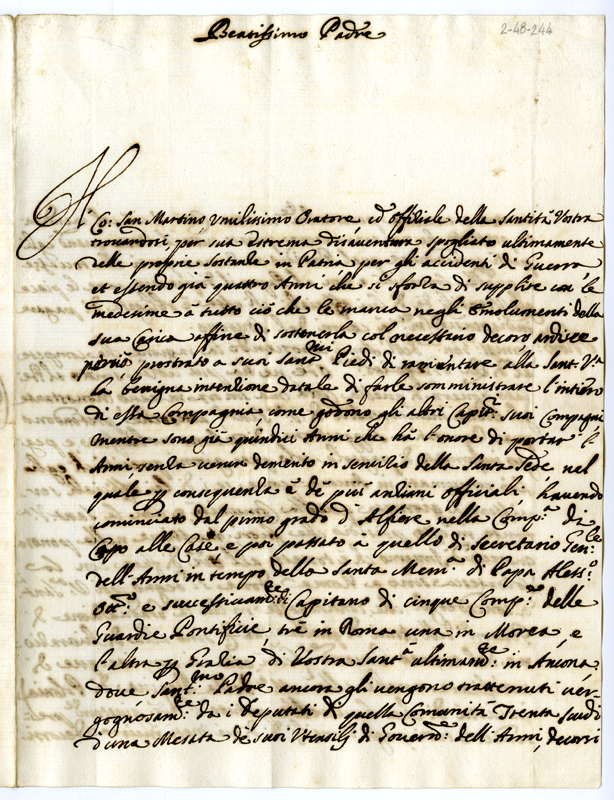 Beatissimo Padre
2-48-244
Il Co: San Martino Umilissimo Oratore ed offitiale della Santità Vostra
trovandosi per sua estrema disaventura spogliato ultimamente
delle proprie sostanze in Patria per gli accidenti di Guerra
et essendo già quattro Anni che si sforza di supplire con le
medesime à tutto ciò che le manca negli Emolumenti della
sua Carica affine di sostenerla col necessario decoro, ardisce
perciò prostrato a suoi Sant.mi Piedi di ramentare alla Sant.tà V.a
la benigna intenzione datale di farle somministrare l'intiero
di essa Compagnia, come godono gli altri Capit.i suoi Compagni
mentre sono già quindici Anni che hà l'onore di portar l'
Armi senza verun demerito in servizio della Santa Sede nel
quale p conseguenza è de più anziani officiali, havendo
cominciato dal primo grado d'Alfiere nella Comp.a di
Capo alle Case e poi passato a quello di Secretario Gen.le
dell'Armi in tempo della Santa Mem.a di Papa Aless.o
Ott.o e successivam.te di Capitano di cinque Comp.e delle
Guardie Pontificie trè in Roma una in Morea, e
l'altra p Grazia di Vostra Sant.à ultimam.te in Ancona
dove Sant.mo Padre ancora gli vengono trattenuti ver-
gognosam.te da i Deputati di quella Comunità Trenta scudi
d'una Mesata de suoi Utensilj di Govern.e dell'Armi, decorsi